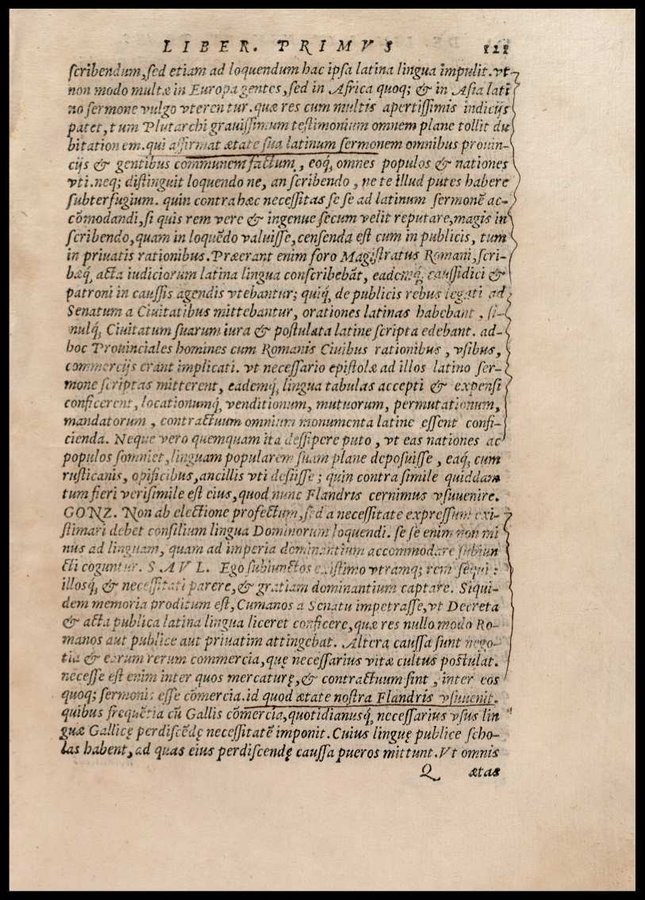 LIBER. PRIMVS 121
scribendum, sed etiam ad loquendum hac ipsa latina lingua impulit. vt
non modo multæ in Europa gentes, sed in Africa quoq; & in Asia lati
no sermone vulgo vterentur. quæ res cum multis apertissimis indicijs
patet, tum Plutarchi grauissimum testimonium omnem plane tollit du
bitationem. qui affirmat ætate sua latinum sermonem omnibus prouin-
cijs & gentibus communem factum, eoq́, omnes populos & nationes
vti. neq; distinguit loquendo ne, an scribendo, ne te illud putes habere
subterfugium. quin contra hæc necessitas se se ad latinum sermonē ac-
cōmodandi, si quis rem vere & ingenue secum velit reputare, magis in
scribendo, quam in loquēdo valuisse, censenda est cum in publicis, tum
in priuatis rationibus. Præerant enim foro Magistratus Romani, scri-
bæq́, acta iudiciorum latina lingua conscribebāt, eademq́, caussidici &
patroni in caussis agendis vtebantur; quiq́, de publicis rebus legati ad
Senatum a Ciuitatibus mittebantur, orationes latinas habebant, si-
mulq́, Ciuitatum suarum iura & postulata latine scripta edebant. ad-
hoc Prouinciales homines cum Romanis Ciuibus rationibus, vsibus,
commercijs erāt implicati. vt necessario epistolæ ad illos latino ser-
mone scriptas mitterent, eademq́, lingua tabulas accepti & expensi
conficerent, locationumq́, venditionum, mutuorum, permutationum,
mandatorum, contractuum omnium monumenta latine essent confi-
cienda. Neque vero quemquam ita desipere puto, vt eas nationes ac
populos somniet, linguam popularem suam plane deposuisse, eaq́, cum
rusticanis, opificibus, ancillis vti desiisse; quin contra simile quiddam
tum fieri verisimile est eius, quod nunc Flandris cernimus vsuuenire.
GONZ. Non ab electione profectum, sed a necessitate expressum exi-
stimari debet consilium lingua Dominorum loquendi. se se enim non mi
nus ad linguam, quam ad imperia dominantium accommodare subiun
cti coguntur. SAVL. Ego subiunctos existimo vtramq; rem sequi:
illosq́, & necessitati parere, & gratiam dominantium captare. Siqui-
dem memoria proditum est, Cumanos a Senatu impetrasse, vt Decreta
& acta publica latina lingua liceret conficere, quæ res nullo modo Ro-
manos aut publice aut priuatim attingebat. Altera caussa sunt nego-
tia & earum rerum commercia, quę necessarius vitæ cultus postulat.
necesse est enim inter quos mercaturę, & contractuum sint, inter eos
quoq; sermonis esse cōmercia. id quod ætate nostra Flandris vsuuenit.
quibus frequētia cū Gallis cōmercia, quotidianusq́, necessarius vsus lin
guæ Gallicę perdiscēdę necessitatē imponit. Cuius linguę publice scho-
las habent, ad quas eius perdiscendę caussa pueros mittunt. Vt omnis
Q ætas